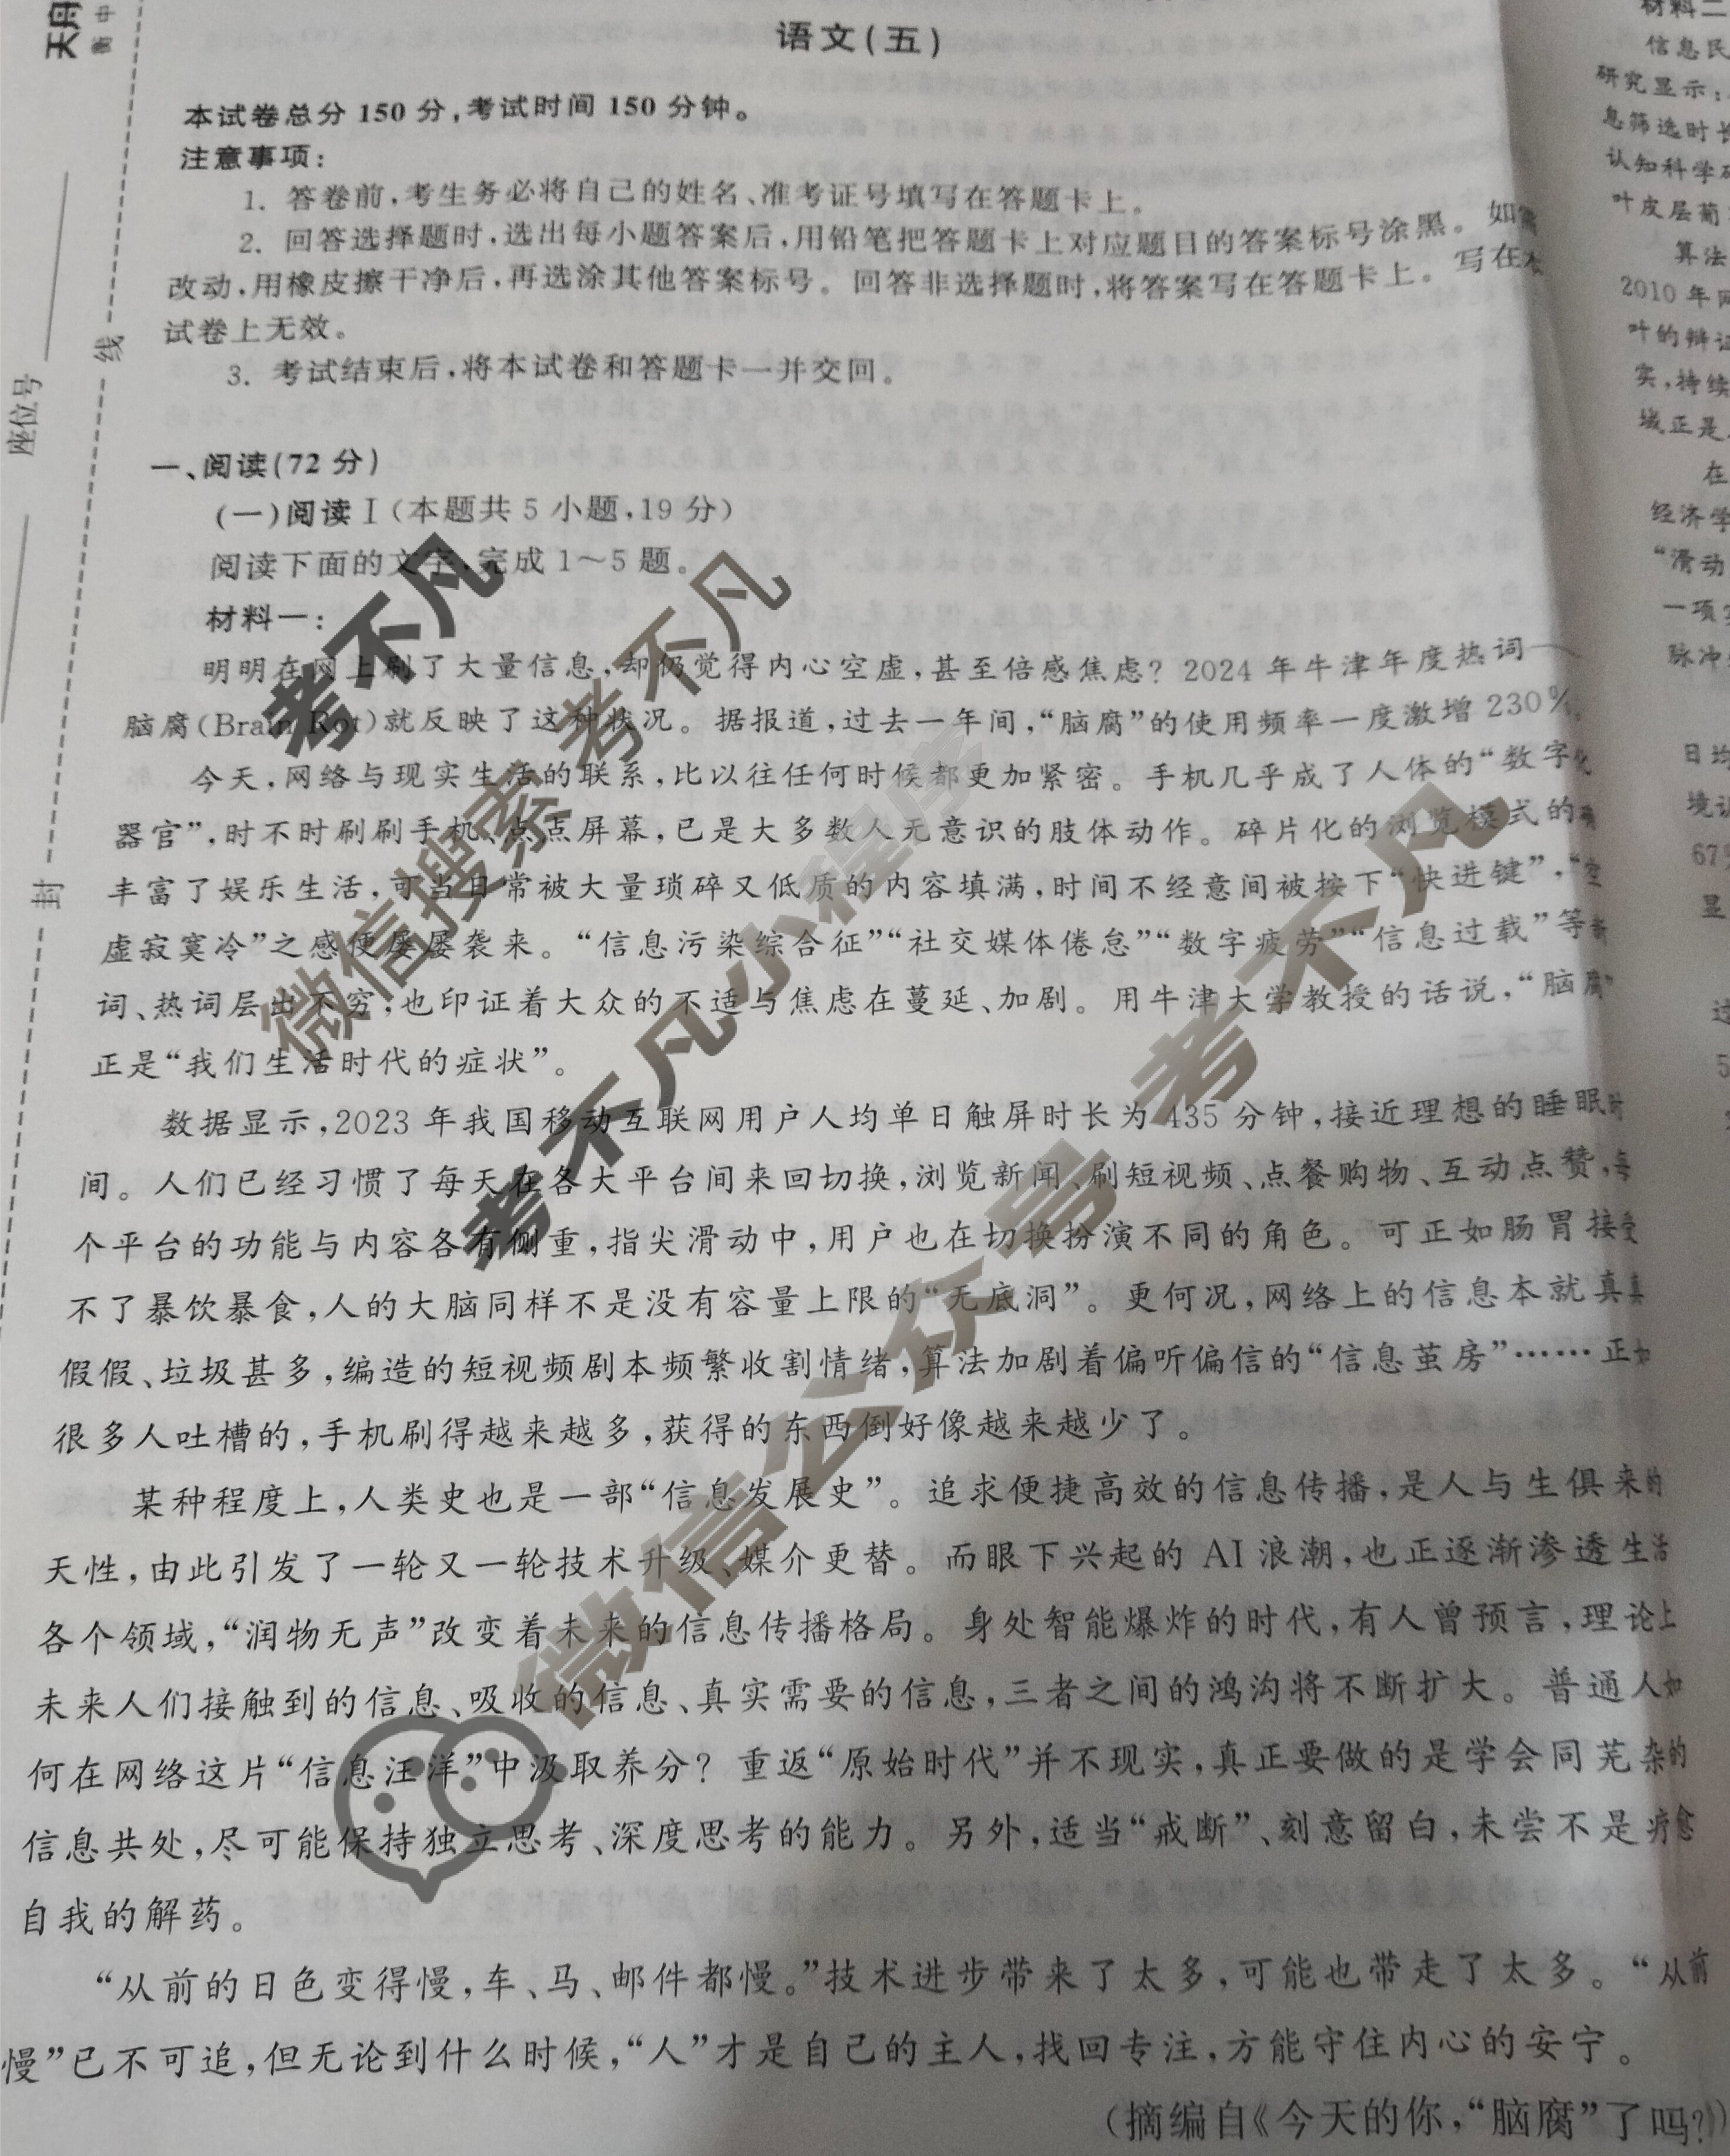 天舟
衡中
座位号
线
封
语文(五)
本试卷总分150分,考试时间150分钟。
注意事项:
1. 答卷前,考生务必将自己的姓名、准考证号填写在答题卡上。
2. 回答选择题时,选出每小题答案后,用铅笔把答题卡上对应题目的答案标号涂黑。如需
改动,用橡皮擦干净后,再选涂其他答案标号。回答非选择题时,将答案写在答题卡上。写在本
试卷上无效。
3. 考试结束后,将本试卷和答题卡一并交回。
一、阅读(72分)
(一)阅读Ⅰ(本题共5小题,19分)
阅读下面的文字,完成1~5题。
材料一:
明明在网上刷了大量信息,却仍觉得内心空虚,甚至倍感焦虑?2024年牛津年度热词——
脑腐(Brain Rot)就反映了这种状况。据报道,过去一年间,“脑腐”的使用频率一度激增230%。
今天,网络与现实生活的联系,比以往任何时候都更加紧密。手机几乎成了人体的“数字化
器官”,时不时刷刷手机、点点屏幕,已是大多数人无意识的肢体动作。碎片化的浏览模式的确
丰富了娱乐生活,可当日常被大量琐碎又低质的内容填满,时间不经意间被按下“快进键”,“空
虚寂寞冷”之感便屡屡袭来。“信息污染综合征”“社交媒体倦怠”“数字疲劳”“信息过载”等新
词、热词层出不穷,也印证着大众的不适与焦虑在蔓延、加剧。用牛津大学教授的话说,“脑腐”
正是“我们生活时代的症状”。
数据显示,2023年我国移动互联网用户人均单日触屏时长为435分钟,接近理想的睡眠时
间。人们已经习惯了每天在各大平台间来回切换,浏览新闻、刷短视频、点餐购物、互动点赞,每
个平台的功能与内容各有侧重,指尖滑动中,用户也在切换扮演不同的角色。可正如肠胃接受
不了暴饮暴食,人的大脑同样不是没有容量上限的“无底洞”。更何况,网络上的信息本就真真
假假、垃圾甚多,编造的短视频剧本频繁收割情绪,算法加剧着偏听偏信的“信息茧房”……正如
很多人吐槽的,手机刷得越来越多,获得的东西倒好像越来越少了。
某种程度上,人类史也是一部“信息发展史”。追求便捷高效的信息传播,是人与生俱来的
天性,由此引发了一轮又一轮技术升级、媒介更替。而眼下兴起的AI浪潮,也正逐渐渗透生活
各个领域,“润物无声”改变着未来的信息传播格局。身处智能爆炸的时代,有人曾预言,理论上
未来人们接触到的信息、吸收的信息、真实需要的信息,三者之间的鸿沟将不断扩大。普通人如
何在网络这片“信息汪洋”中汲取养分?重返“原始时代”并不现实,真正要做的是学会同芜杂的
信息共处,尽可能保持独立思考、深度思考的能力。另外,适当“戒断”、刻意留白,未尝不是疗愈
自我的解药。
“从前的日色变得慢,车、马、邮件都慢。”技术进步带来了太多,可能也带走了太多。“从前
慢”已不可追,但无论到什么时候,“人”才是自己的主人,找回专注,方能守住内心的安宁。
(摘编自《今天的你,“脑腐”了吗?》)
材料二
信息民
研究显示:
息筛选时长
认知科学研
叶皮层葡
算法
2010年
叶的辩证
实,持续
域正是
在
经济学
“滑动
一项
脉冲
日均
境识
67%
显
过
5
考不凡
微信搜索 考不凡
考不凡小程序
微信公众号 考不凡